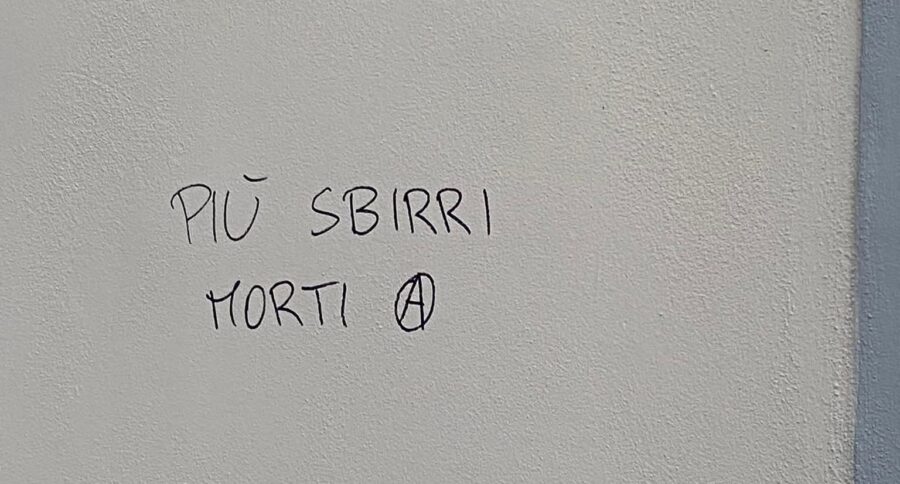 PIÙ SBIRRI
MORTI Ⓐ